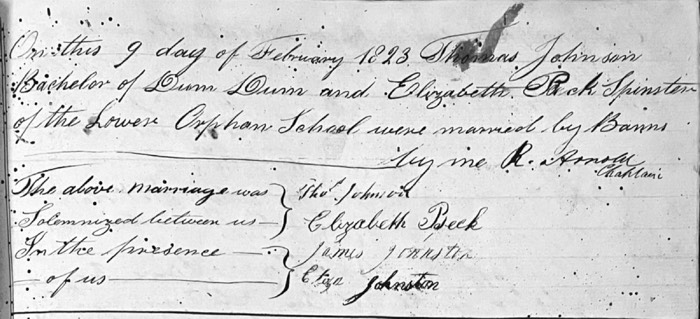 On this 9 day of February 1823 Thomas Johnson
Bachelor of Dum Dum and Elizabeth Peck Spinster
of the Lower Orphan School were married by Banns
by me R. Arnold
Chaplain
The above marriage was } Thos. Johnson
Solemnized between us — } Elizabeth Peck
In the presence — } James Johnston
— of us — } Johnston